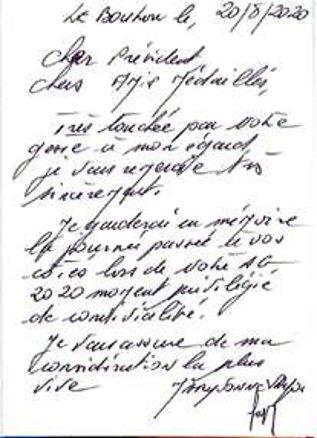 Le Bouchon le, 20/8/2020
Cher Président
Chers Amis Médaillés,
Très touchée par votre
geste à mon égard
je vous remercie très
sincèrement.
Je garderai en mémoire
la journée passée à vos
côtés lors de votre AG
2020 moment privilégié
de convivialité.
Je vous assure de ma
considération la plus
vive